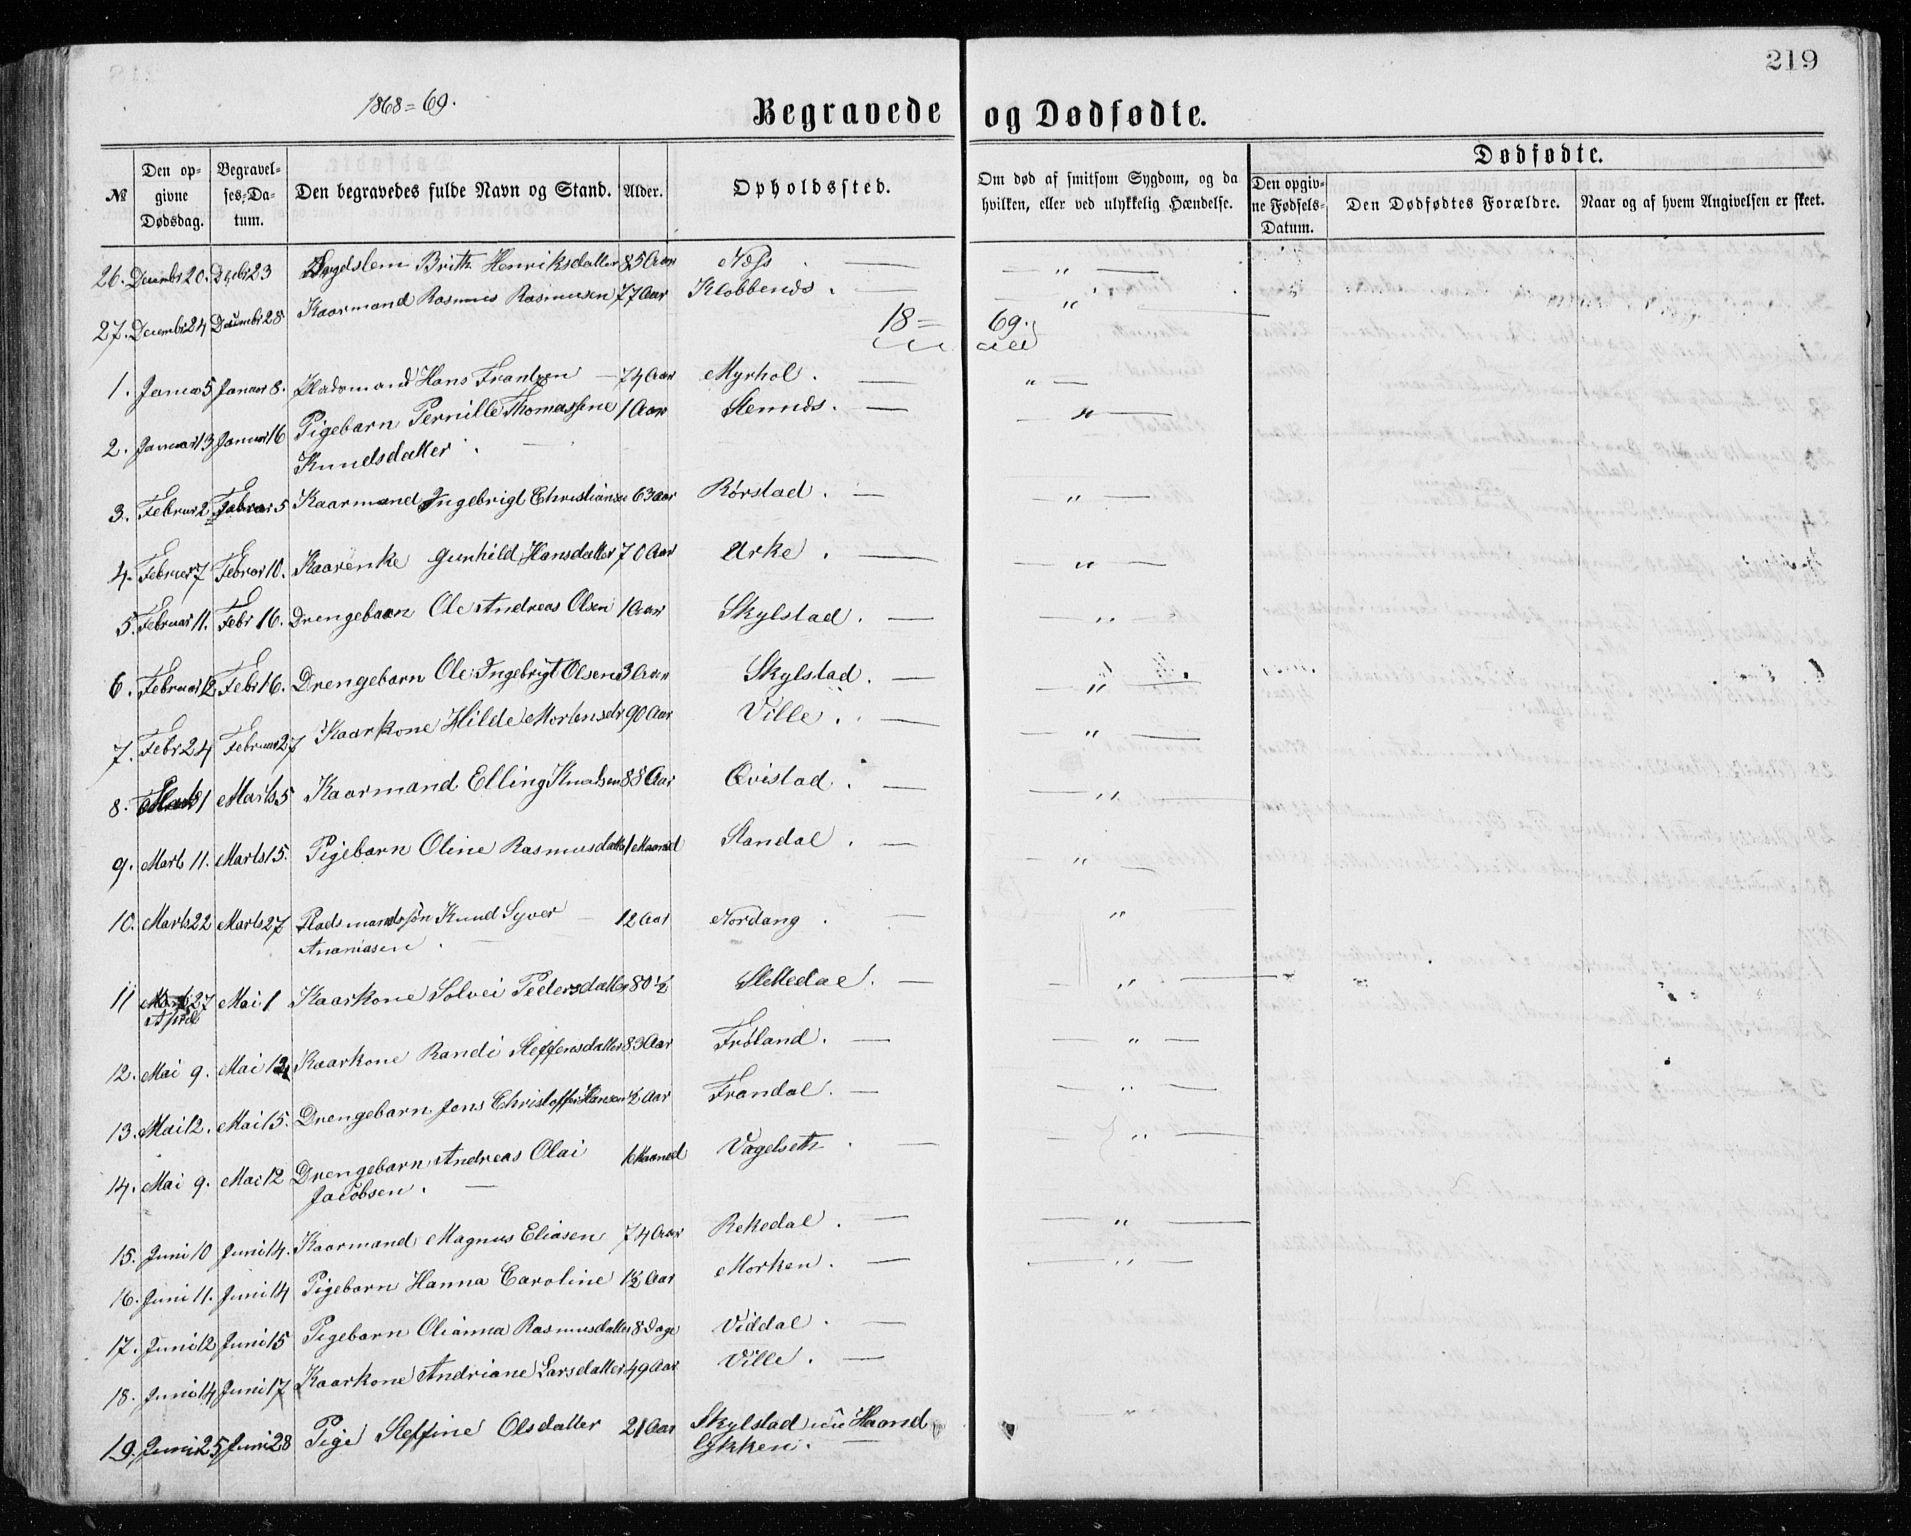 219
1868=69.
Begravede og Dødfødte.
Dødfødte.
№ Den opgivne Dødsdag. Begravelses-Datum. Den begravedes fulde Navn og Stand. Alder. Opholdssted. Om død af smitsom Sygdom, og da hvilken, eller ved ulykkelig Hændelse. Den opgivne Fødsels-Datum. Den Dødfødtes Forældre. Naar og af hvem Angivelsen er skeet.
26. Decembr 20. Decbr 23 Brith Henriksdatter 85 Aar Næss — " —
27. Decembr 24 Decembr 28 Kaarmand Rasmus Rasmusen 77 Aar Klobbenes. — " —
18=69.
1. Januar 5 Januar 8. Pladsmand Hans Frantzen — 74 Aar Myrhol. — " —
2. Januar 13 Januar 16 Pigebarn Pernille Thomassine 1 Aar Stennes. — " —
Knudsdatter. —
3. Februar 2 Februar 5 Kaarmand Ingebrigt Christiansen 63 Aar Rørstad. — " —
4. Februar 7 Februar 10. Kaarenke Gunhild Hansdatter 70 Aar Urke. — " —
5. Februar 11. Febr 16. Drengebarn Ole Andreas Olsen 1 Aar Skylstad. — " —
6. Februar 12 Febr 16. Drengebarn Ole Ingebrigt Olsen 3 Aar Skylstad. — " —
7. Febr 24 Februar 27 Kaarkone Hilde Mortensdr 90 Aar Ville. — " —
8. Marts 1 Marts 5 Kaarmand Elling Knudsen 88 Aar Qvistad. — " —
9. Marts 11. Marts 15. Pigebarn Oline Rasmusdatter 1 Maaned Standal. — " —
10. Marts 22 Marts 27 Pladsmandssøn Knud Syver — 12 Aar Nordang. — " —
Ananiasen. —
11 April 27 Mai 1 Kaarkone Solvei Pedersdatter 80 ½ Slettedal. — " —
12. Mai 9. Mai 12 Kaarkone Randi Steffensdatter 83 Aar Frøland. — " —
13. Mai 12. Mai 15. Drengebarn Jens Christoffer Hansen ½ Aar Trandal. — " —
14. Mai 9. Mai 12 Drengebarn Andreas Olai 6 Maaned Vagelseth. — " —
Jacobsen. —
15. Juni 10 Juni 14. Kaarmand Magnus Eliasen 74 Aar Rekedal. — " —
16. Juni 11. Juni 14 Pigebarn Hanna Caroline 1½ Aar Morken. — " —
17. Juni 12 Juni 15 Pigebarn Olianna Rasmusdatter 8 Dage Viddal. —
18. Juni 14 Juni 17 Kaarkone Andriane Larsdatter 49 Aar Ville. —
19. Juni 25 Juni 28 Pige Steffine Olsdatter 21 Aar Skylstad